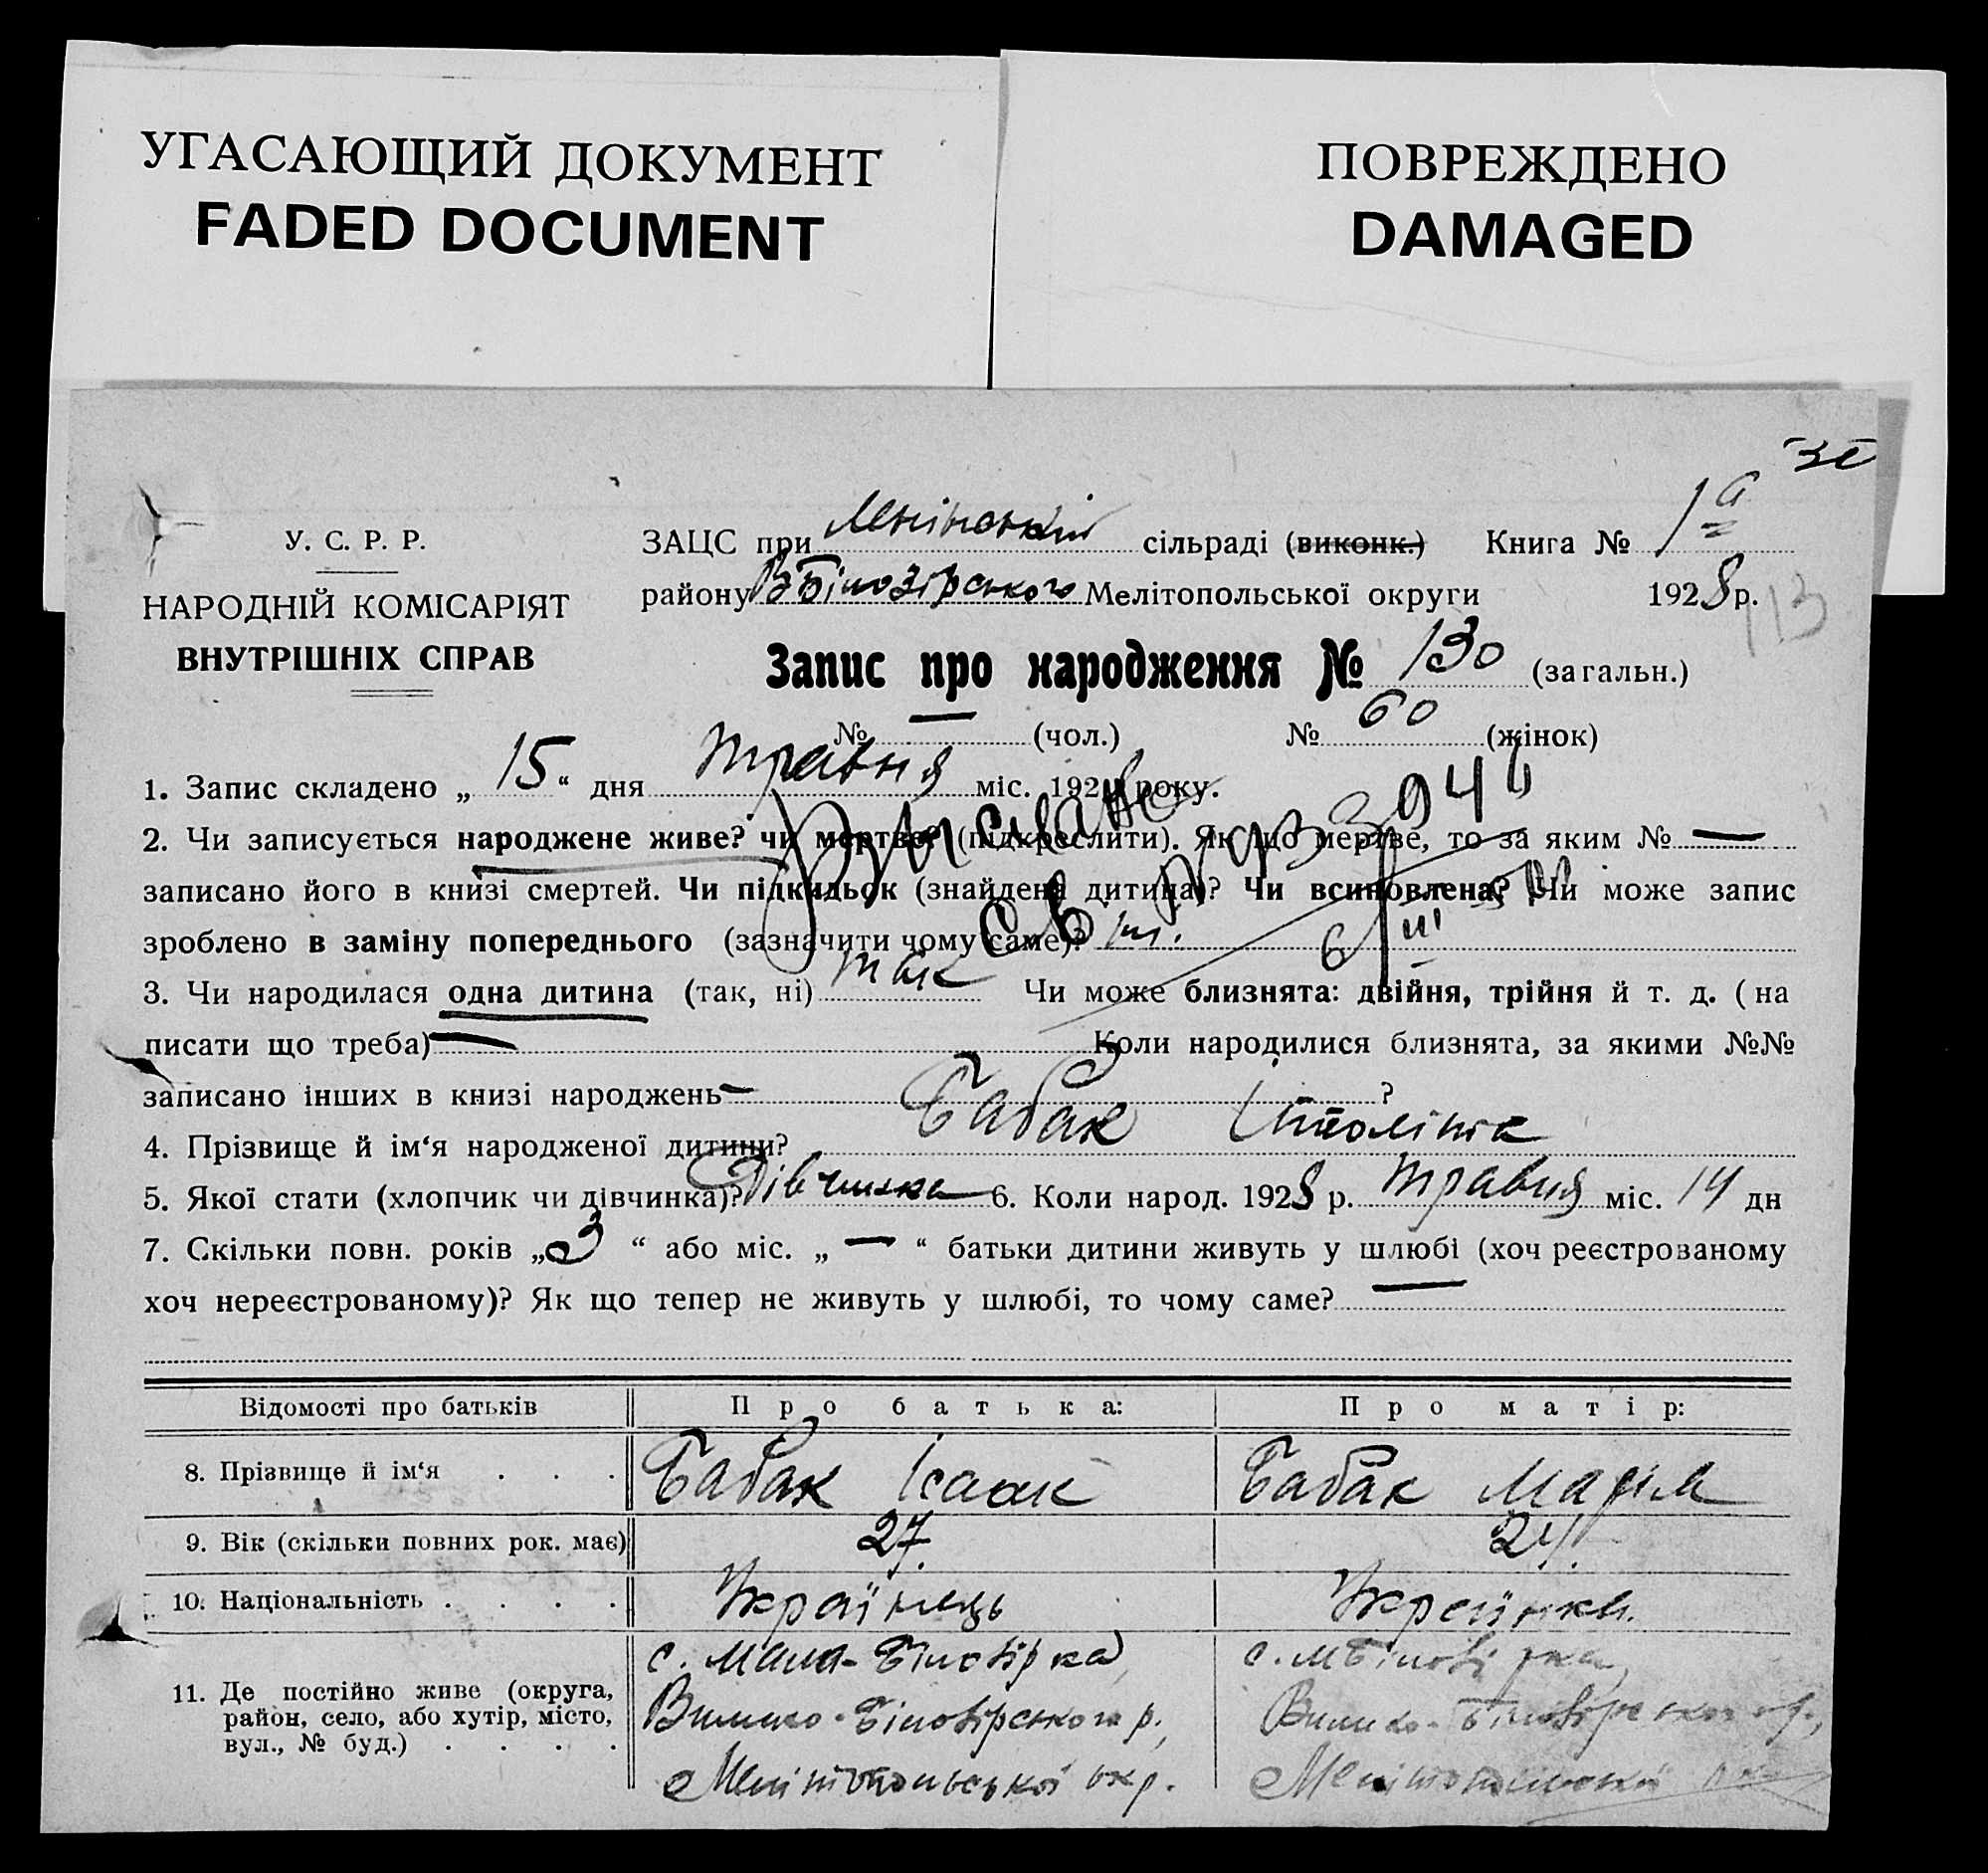 УГАСАЮЩИЙ ДОКУМЕНТ
FADED DOCUMENT
ПОВРЕЖДЕНО
DAMAGED
У. С. Р. Р.
НАРОДНІЙ КОМІСАРІЯТ
ВНУТРІШНІХ СПРАВ
ЗАЦС при сільраді (виконк.) Книга № 1а
району ВБілозірського Мелітопольської округи 1928 р.
113
Запис про народження № 130 (загальн.)
№ — (чол.) № 60 (жінок)
1. Запис складено „ 15 “ дня травня міс. 1928 року.
2. Чи записується народжене живе? чи мертве? (підкреслити). Як що мертве, то за яким № —
записано його в книзі смертей. Чи підкидьок (знайдена дитина)? Чи всиновлена? Чи може запис
зроблено в заміну попереднього (зазначити чому саме)?
3. Чи народилася одна дитина (так, ні) так Чи може близнята: двійня, трійня й т. д. (на
писати що треба) — Коли народилися близнята, за якими №№
записано інших в книзі народжень — ?
4. Прізвище й ім‘я народженої дитини? Бабак
5. Якої стати (хлопчик чи дівчинка)? Дівчинка 6. Коли народ. 1928 р. травня міс. 14 дн
7. Скільки повн. років „ 3 “ або міс. „ — “ батьки дитини живуть у шлюбі (хоч реєстрованому
хоч нереєстрованому)? Як що тепер не живуть у шлюбі, то чому саме? —
Відомості про батьків Про батька: Про матір:
8. Прізвище й ім‘я . . . Бабак Ісаак Бабак Марія
9. Вік (скільки повних рок. має) 27. 24.
10. Національність . . . . Українець Українка.
11. Де постійно живе (округа,
район, село, або хутір, місто,
вул., № буд.) . . . .
с. Мала-Білозірка,
Велико-Білозірського р.,
Мелітопольської окр.
с. МБілозірка,
Велико-Білозірського р.,
Мелітопольської